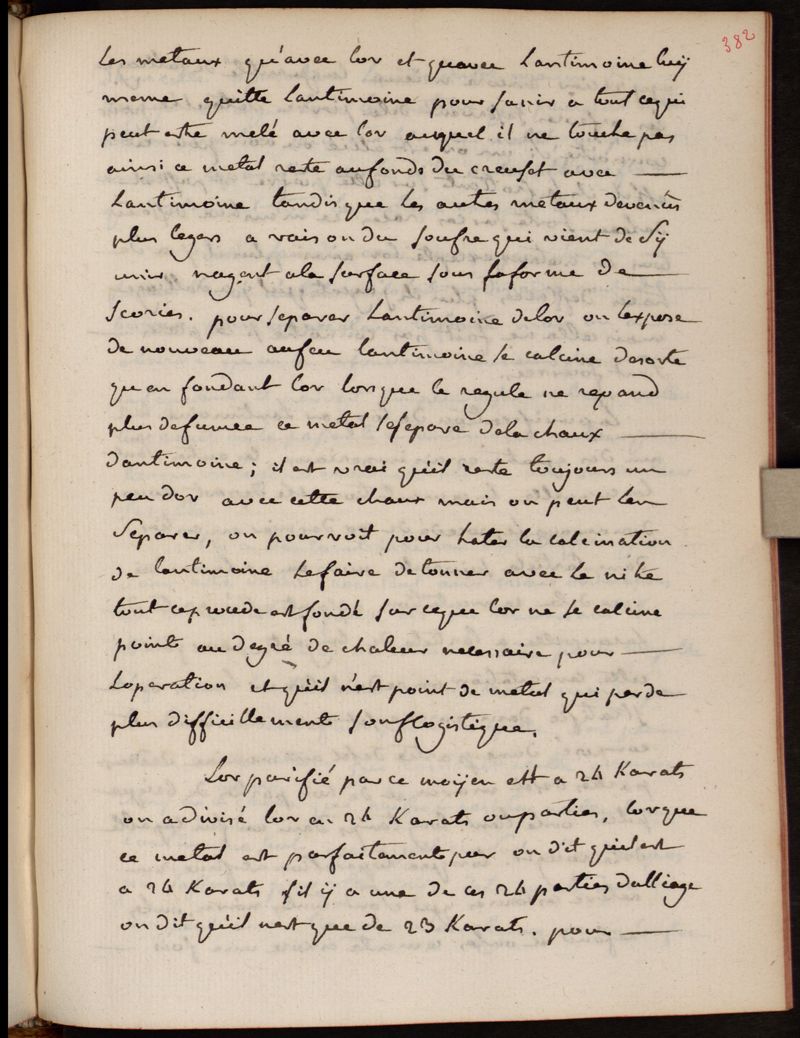 382
les metaux qu'avec lor et quavec Lantimoine luÿ
meme quitte Lantimoine pour sunir a tout cequi
peut estre melé avec lor auquel il ne touche pas
ainsi ce metal reste aufonds du creuset avec
Lantimoine tandis que les autres metaux devenus
plus legers a raison du soufre qui vient de sÿ
unir nagent ala surface sous laforme de
scories. pour separer Lantimoine delor on lexpose
de nouveau aufeu lantimoine se calcine desorte
quen fondant lor lorsque le regule ne repand
plus defumee ce metal sesepare dela chaux
dantimoine ; il est vrai quil reste toujours un
peu dor avec cette chaux mais on peut len
separer, on pourroit pour hater la calcination
de lantimoine Lefaire detonner avec le nitre
tout ceprocede est fondé sur ceque lor ne se calcine
point au degré de chaleur necessaire pour
Loperation et quil n'est point de metal qui perde
plus difficillement sonflogistique.
Lor purifié par ce moÿen est a 24 Karats
on a divisé lor en 24 Karats ouparties, lorque
ce metal est parfaitement pur on dit quil est
a 24 Karats sil ÿ a une de ces 24 parties dalliage
on dit qu'il nest que de 23 Karats. pour